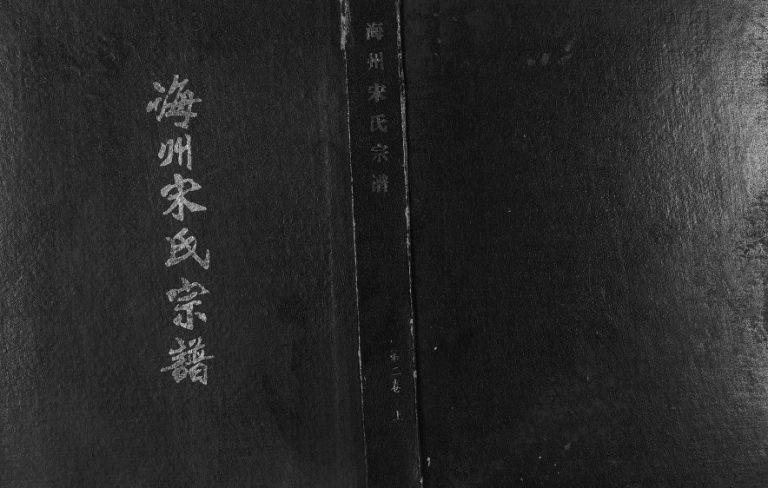 海州宋氏宗譜
海州宋氏宗譜
第二卷 上